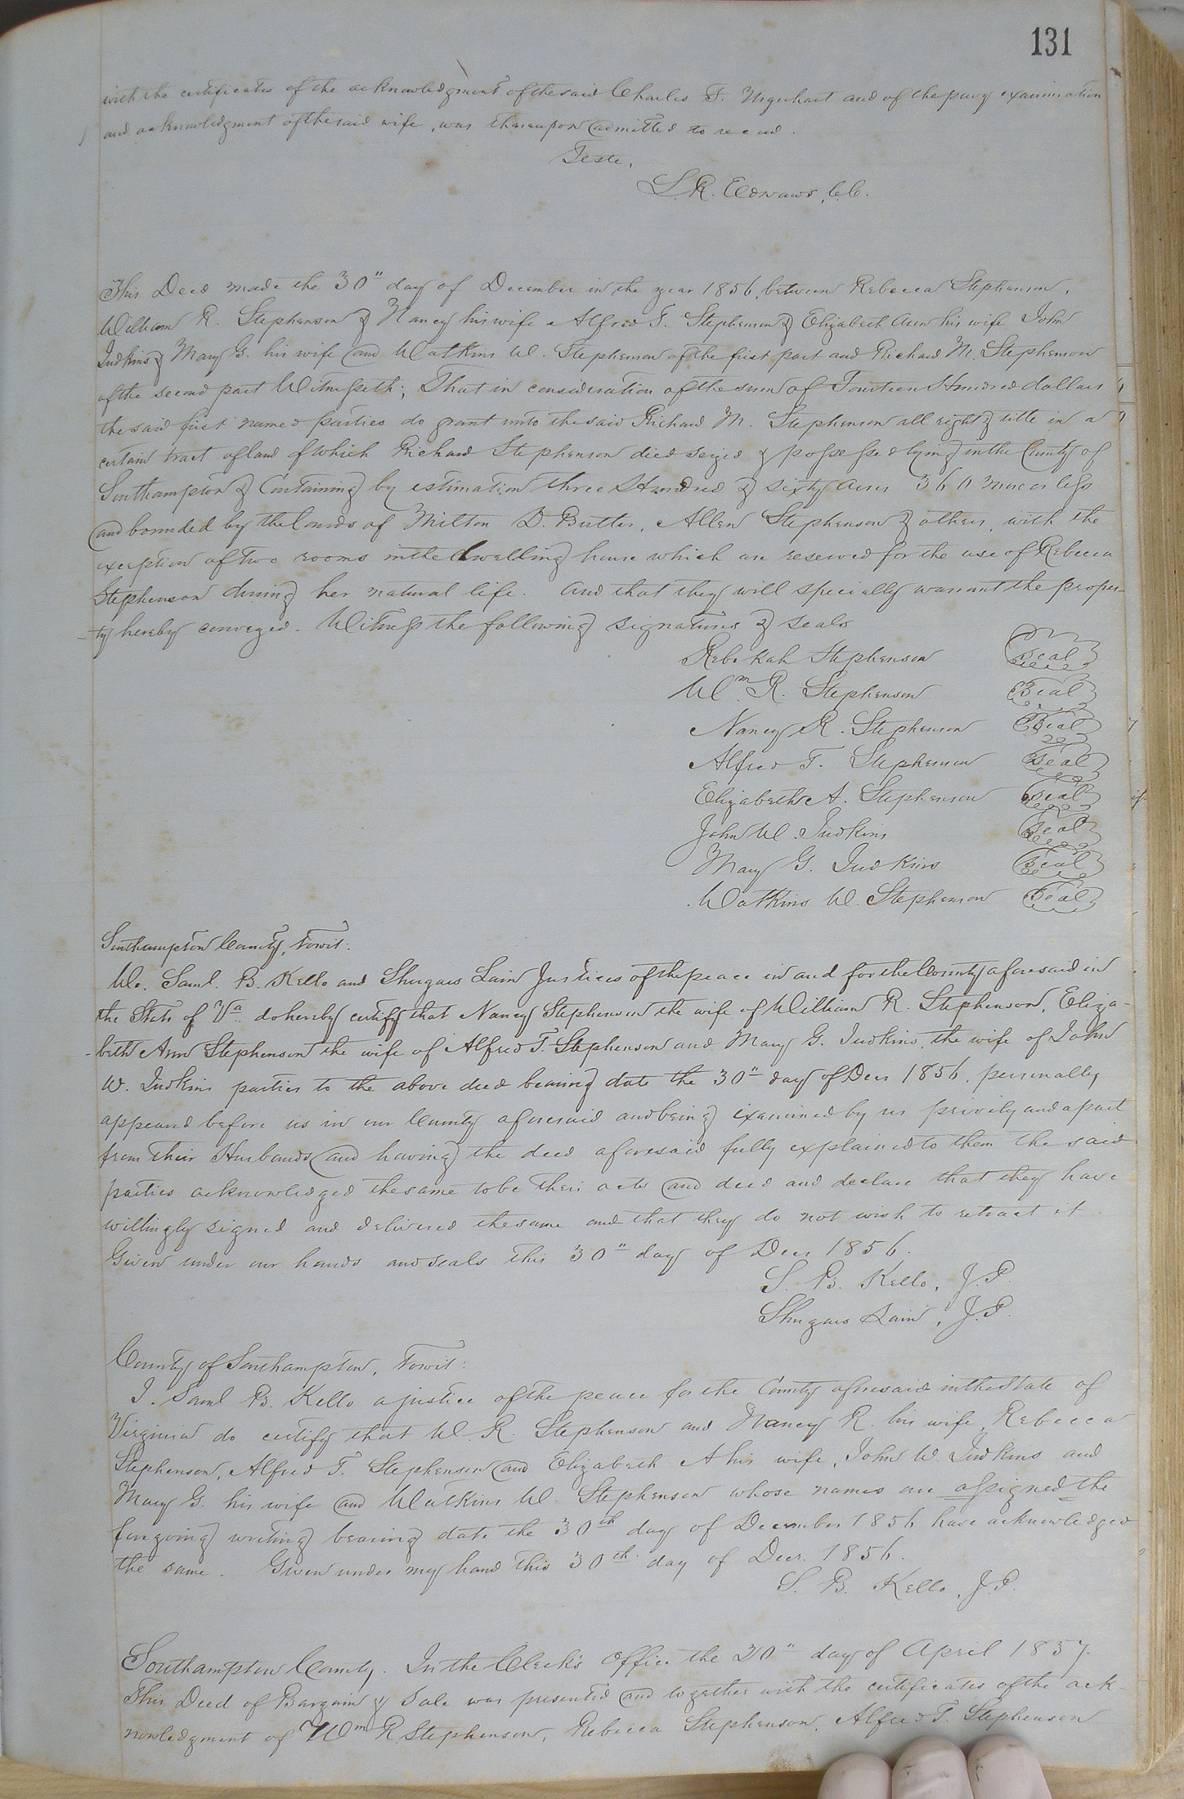 131
with the certificates of the acknowledgment of the said Charles F. Urquhart and of the privy examination
and acknowledgment of the said wife, was thereupon admitted to record.
Teste,
L. R. Edwards, C.C.
This Deed made the 30" day of December in the year 1856 between Rebecca Stephenson,
William R. Stephenson & Nancy his wife Alfred T. Stephenson & Elizabeth Ann his wife John
Judkins & Mary G. his wife and Watkins W. Stephenson of the first part and Richard M. Stephenson
of the second part Witnesseth; That in consideration of the sum of Fourteen Hundred dollars
the said first named parties do grant unto the said Richard M. Stephenson all right & title in a
certain tract of land of which Richard Stephenson died seized & possessed lying in the County of
Southampton & Containing by estimation three Hundred & sixty acres 360 more or less
and bounded by the lands of Milton D. Butler, Allen Stephenson & others, with the
exception of two rooms in the dwelling house which are reserved for the use of Rebecca
Stephenson during her natural life. And that they will specially warrant the proper-
-ty hereby conveyed. Witness the following signatures & seals
Rebekah Stephenson Seal
Wm R. Stephenson Seal
Nancy R. Stephenson Seal
Alfred T. Stephenson Seal
Elizabeth A. Stephenson Seal
John W. Judkins Seal
Mary G. Judkins Seal
Watkins W. Stephenson Seal
Southampton County, Towit:
We. Saml. B. Kello and Shugars Lain Justices of the peace in and for the County aforesaid in
the State of Va do hereby certify that Nancy Stephenson the wife of William R. Stephenson, Eliza-
-beth Ann Stephenson the wife of Alfred T. Stephenson and Mary G. Judkins, the wife of John
W. Judkins parties to the above deed bearing date the 30" day of Decr 1856. personally
appeared before us in our County aforesaid and being examined by us privily and apart
from their Husbands and having the deed aforesaid fully explained to them the said
parties acknowledged the same to be their acts and deed and declare that they have
willingly signed and delivered the same and that they do not wish to retract it.
Given under our hands and seals this 30" day of Decr 1856.
S. B. Kello, J.P.
Shugars Lain, J.P.
County of Southampton, Towit:
I. Saml B. Kello a justice of the peace for the County aforesaid in the State of
Virginia do certify that W. R. Stephenson and Nancy R. his wife, Rebecca
Stephenson, Alfred T. Stephenson and Elizabeth A his wife, John W. Judkins and
Mary G. his wife and Watkins W. Stephenson whose names are assigned the
foregoing writing bearing date the 30th day of December 1856 have acknowledged
the same. Given under my hand this 30th day of Decr. 1856.
S. B. Kello, J.P.
Southampton County. In the Clerk's Office the 20" day of April 1857.
This Deed of Bargain & Sale was presented and together with the certificates of the ack-
nowledgment of Wm R Stephenson, Rebecca Stephenson, Alfred T. Stephenson